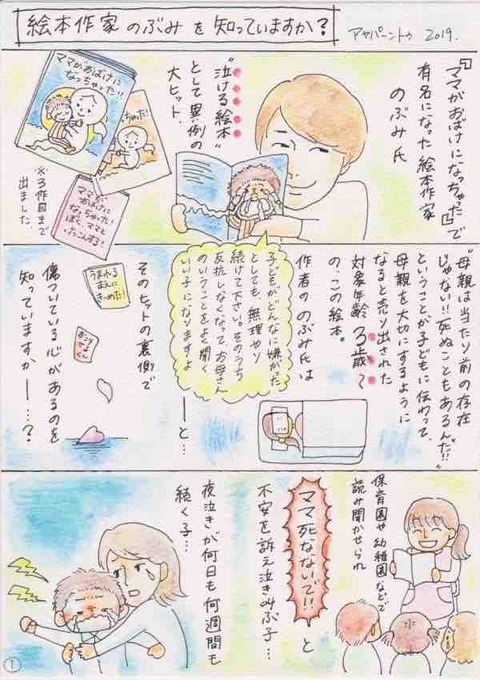 絵本作家 のぶみ を 知っていますか?
アヤパーントゥ 2019.
『ママがおばけになっちゃった』で
有名になった 絵本作家
のぶみ氏
"泣ける絵本"
として異例の
大ヒット.
ママがおばけに
なっちゃった!
ちゃった!
ママが
おばけに
なっちゃった!
ぼく、ママと
けっこんする!
※3作目まで
出ました.
"母親は当たり前の存在
じゃない!!死ぬこともあるんだ!!"
ということが子どもに伝わって、
母親を大切にするように
なると売り出された
対象年齢 3歳〜
の、この絵本。
作者の のぶみ氏は
子どもがどんなに嫌がった
としても、無理やり
続けて下さい。そのうち
反抗しなくなって、お母さん
のいうことをよく聞く
いい子になりますよ
ーと…
うまれる
まえに
きめてきた!
そのヒットの裏側で
傷ついている心があるのを
知っていますかー…?
保育園や幼稚園などで
読み聞かせられ
ママ死なないで!!
と
不安を訴え泣き叫ぶ子…
夜泣きが何日も何週間も
続く子…
1